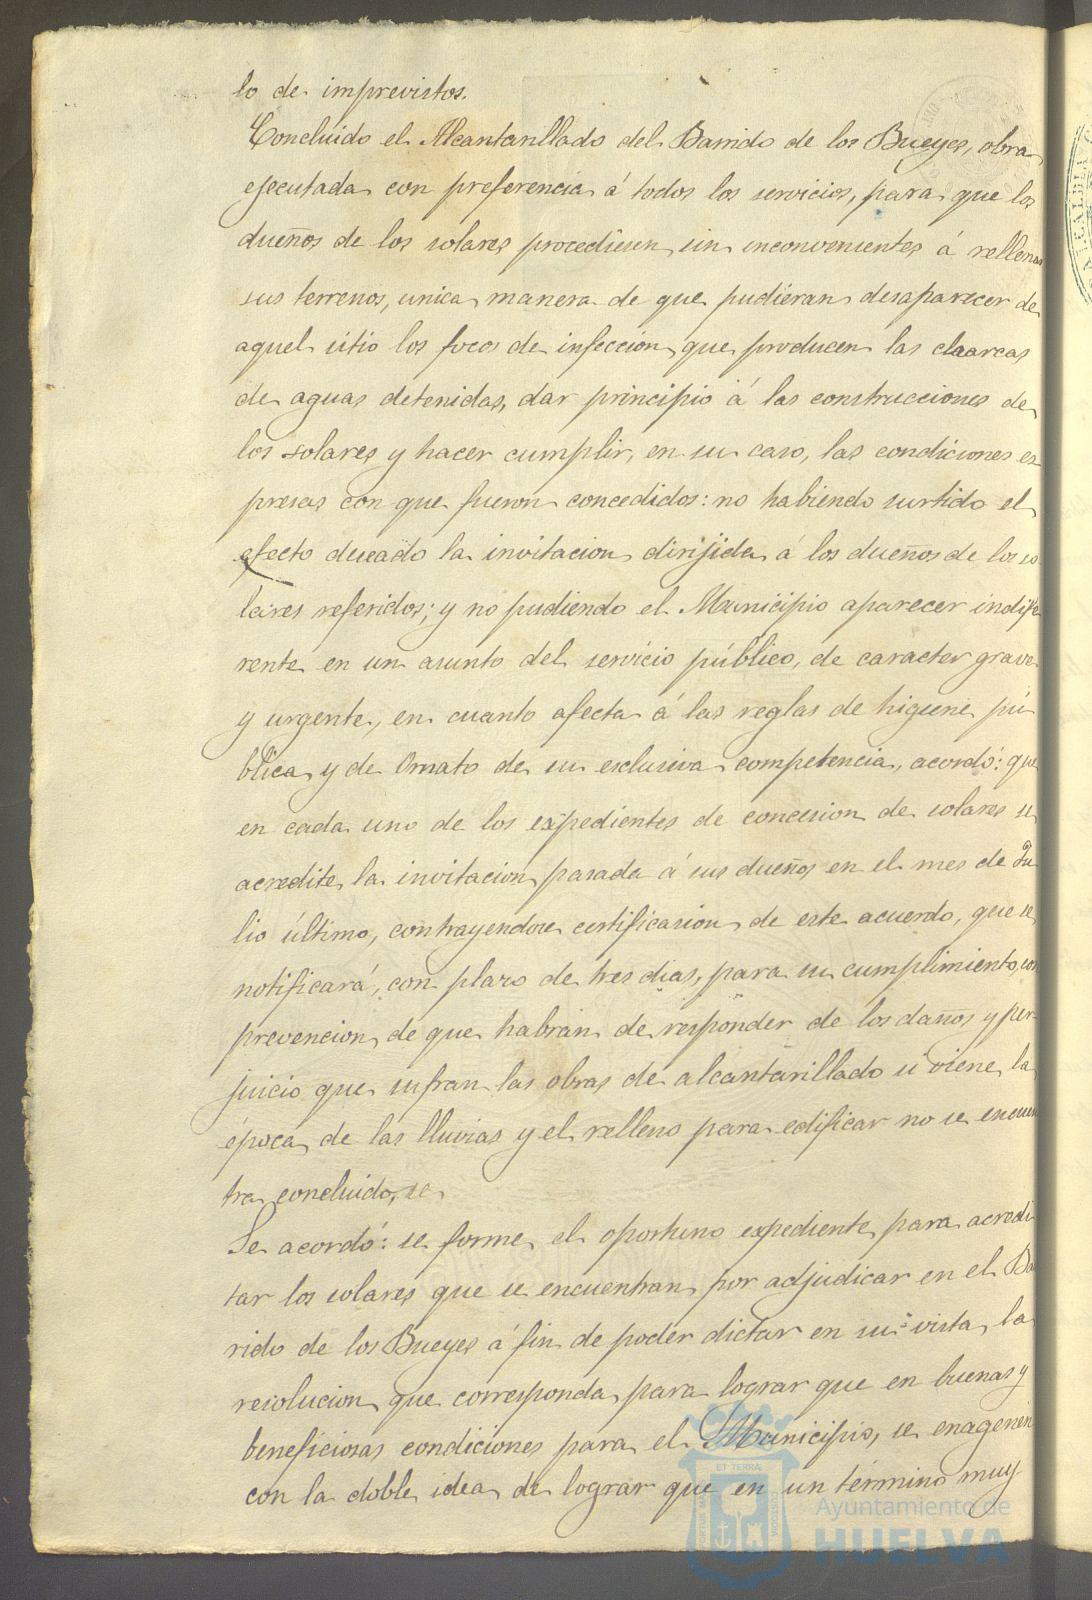 lo de imprevistos.
Concluido el Alcantarillado del Barrido de los Bueyes, obra
ejecutada con preferencia á todos los servicios, para que los
dueños de los solares procediesen sin inconvenientes á rellenar
sus terrenos, unica manera de que pudieran desaparecer de
aquel sitio los focos de infeccion que producen las charcas
de aguas detenidas, dar principio á las construcciones de
los solares y hacer cumplir, en su caso, las condiciones es
presas con que fueron concedidos: no habiendo surtido el
efecto deseado la invitacion dirijida á los dueños de los so
lares referidos; y no pudiendo el Municipio aparecer indife
rente en un asunto del servicio público, de caracter grave
y urgente, en cuanto afecta á las reglas de higiene pú
blica y de Ornato de su esclusiva competencia, acordó: que
en cada uno de los expedientes de concesion de solares se
acredite la invitacion pasada á sus dueños en el mes de Ju
lio último, contrayendose certificasion de este acuerdo, que se
notificará, con plazo de tres dias, para su cumplimiento, con
prevencion de que habrán de responder de los daños y per
juicio que sufran las obras de alcantarillado si viene la
época de las lluvias y el relleno para edificar no se encuen
tra concluido, se
Se acordó: se forme el oportuno expediente para acredi
tar los solares que se encuentran por adjudicar en el Ba
rrido de los Bueyes á fin de poder dictar en su vista la
resolucion que corresponda para lograr que en buenas y
beneficiosas condiciones para el Municipio, se enagenen
con la doble idea de lograr que en un término muy
ET TERRA
Ayuntamiento de
HUELVA